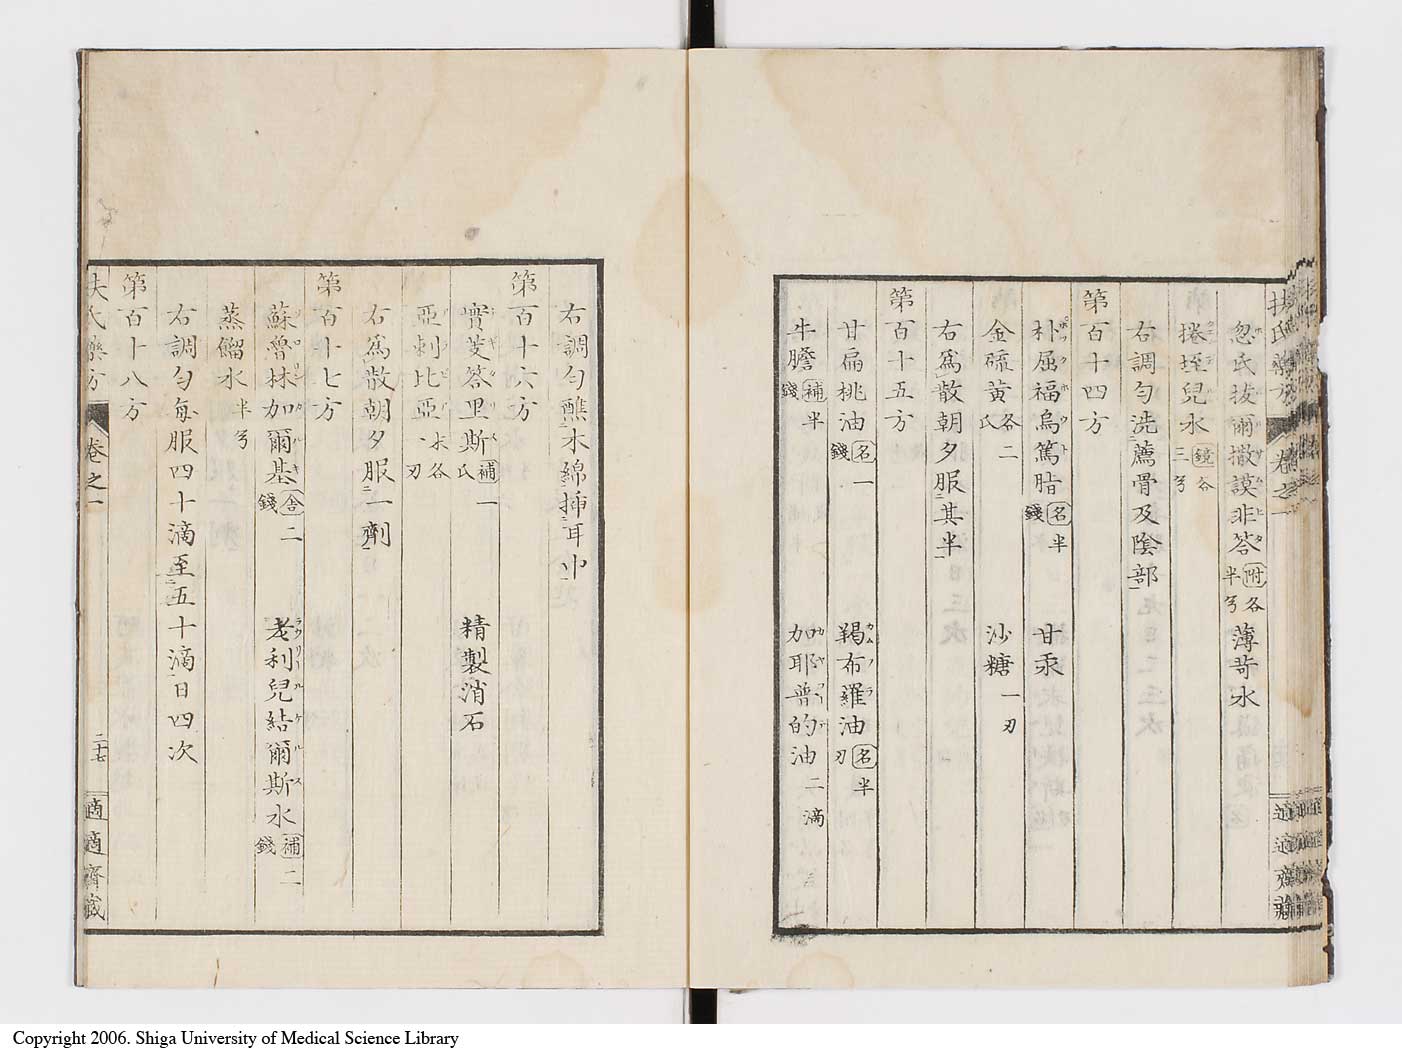 扶氏藥方 卷之一 適適齋藏
忽氏拔爾撒謨非答 附 各半オ 薄荷水
捲埕兒水 鏡 各三オ
右調勻洗薦骨及陰部
第百十四方
朴屈福烏篤脂 名 半錢 甘汞
金硫黄 各二氏 沙糖 一刃
右爲散朝夕服其半
第百十五方
甘扁桃油 名 一錢 羯布羅油 名 半刃
牛膽 補 半錢 加耶普的油 二滴
右調勻醮木綿挿耳中
第百十六方
實芰答里斯 補 一氏 精製消石
亞刺比亞 末各刃
右爲散朝夕服一劑
第百十七方
蘇魯林加爾基 舎 二錢 老利兒結爾斯水 補 二錢
蒸餾水 半オ
右調勻毎服四十滴至五十滴日四次
第百十八方
扶氏藥方 卷之一 二十七 適適齋藏
Copyright 2006. Shiga University of Medical Science Library